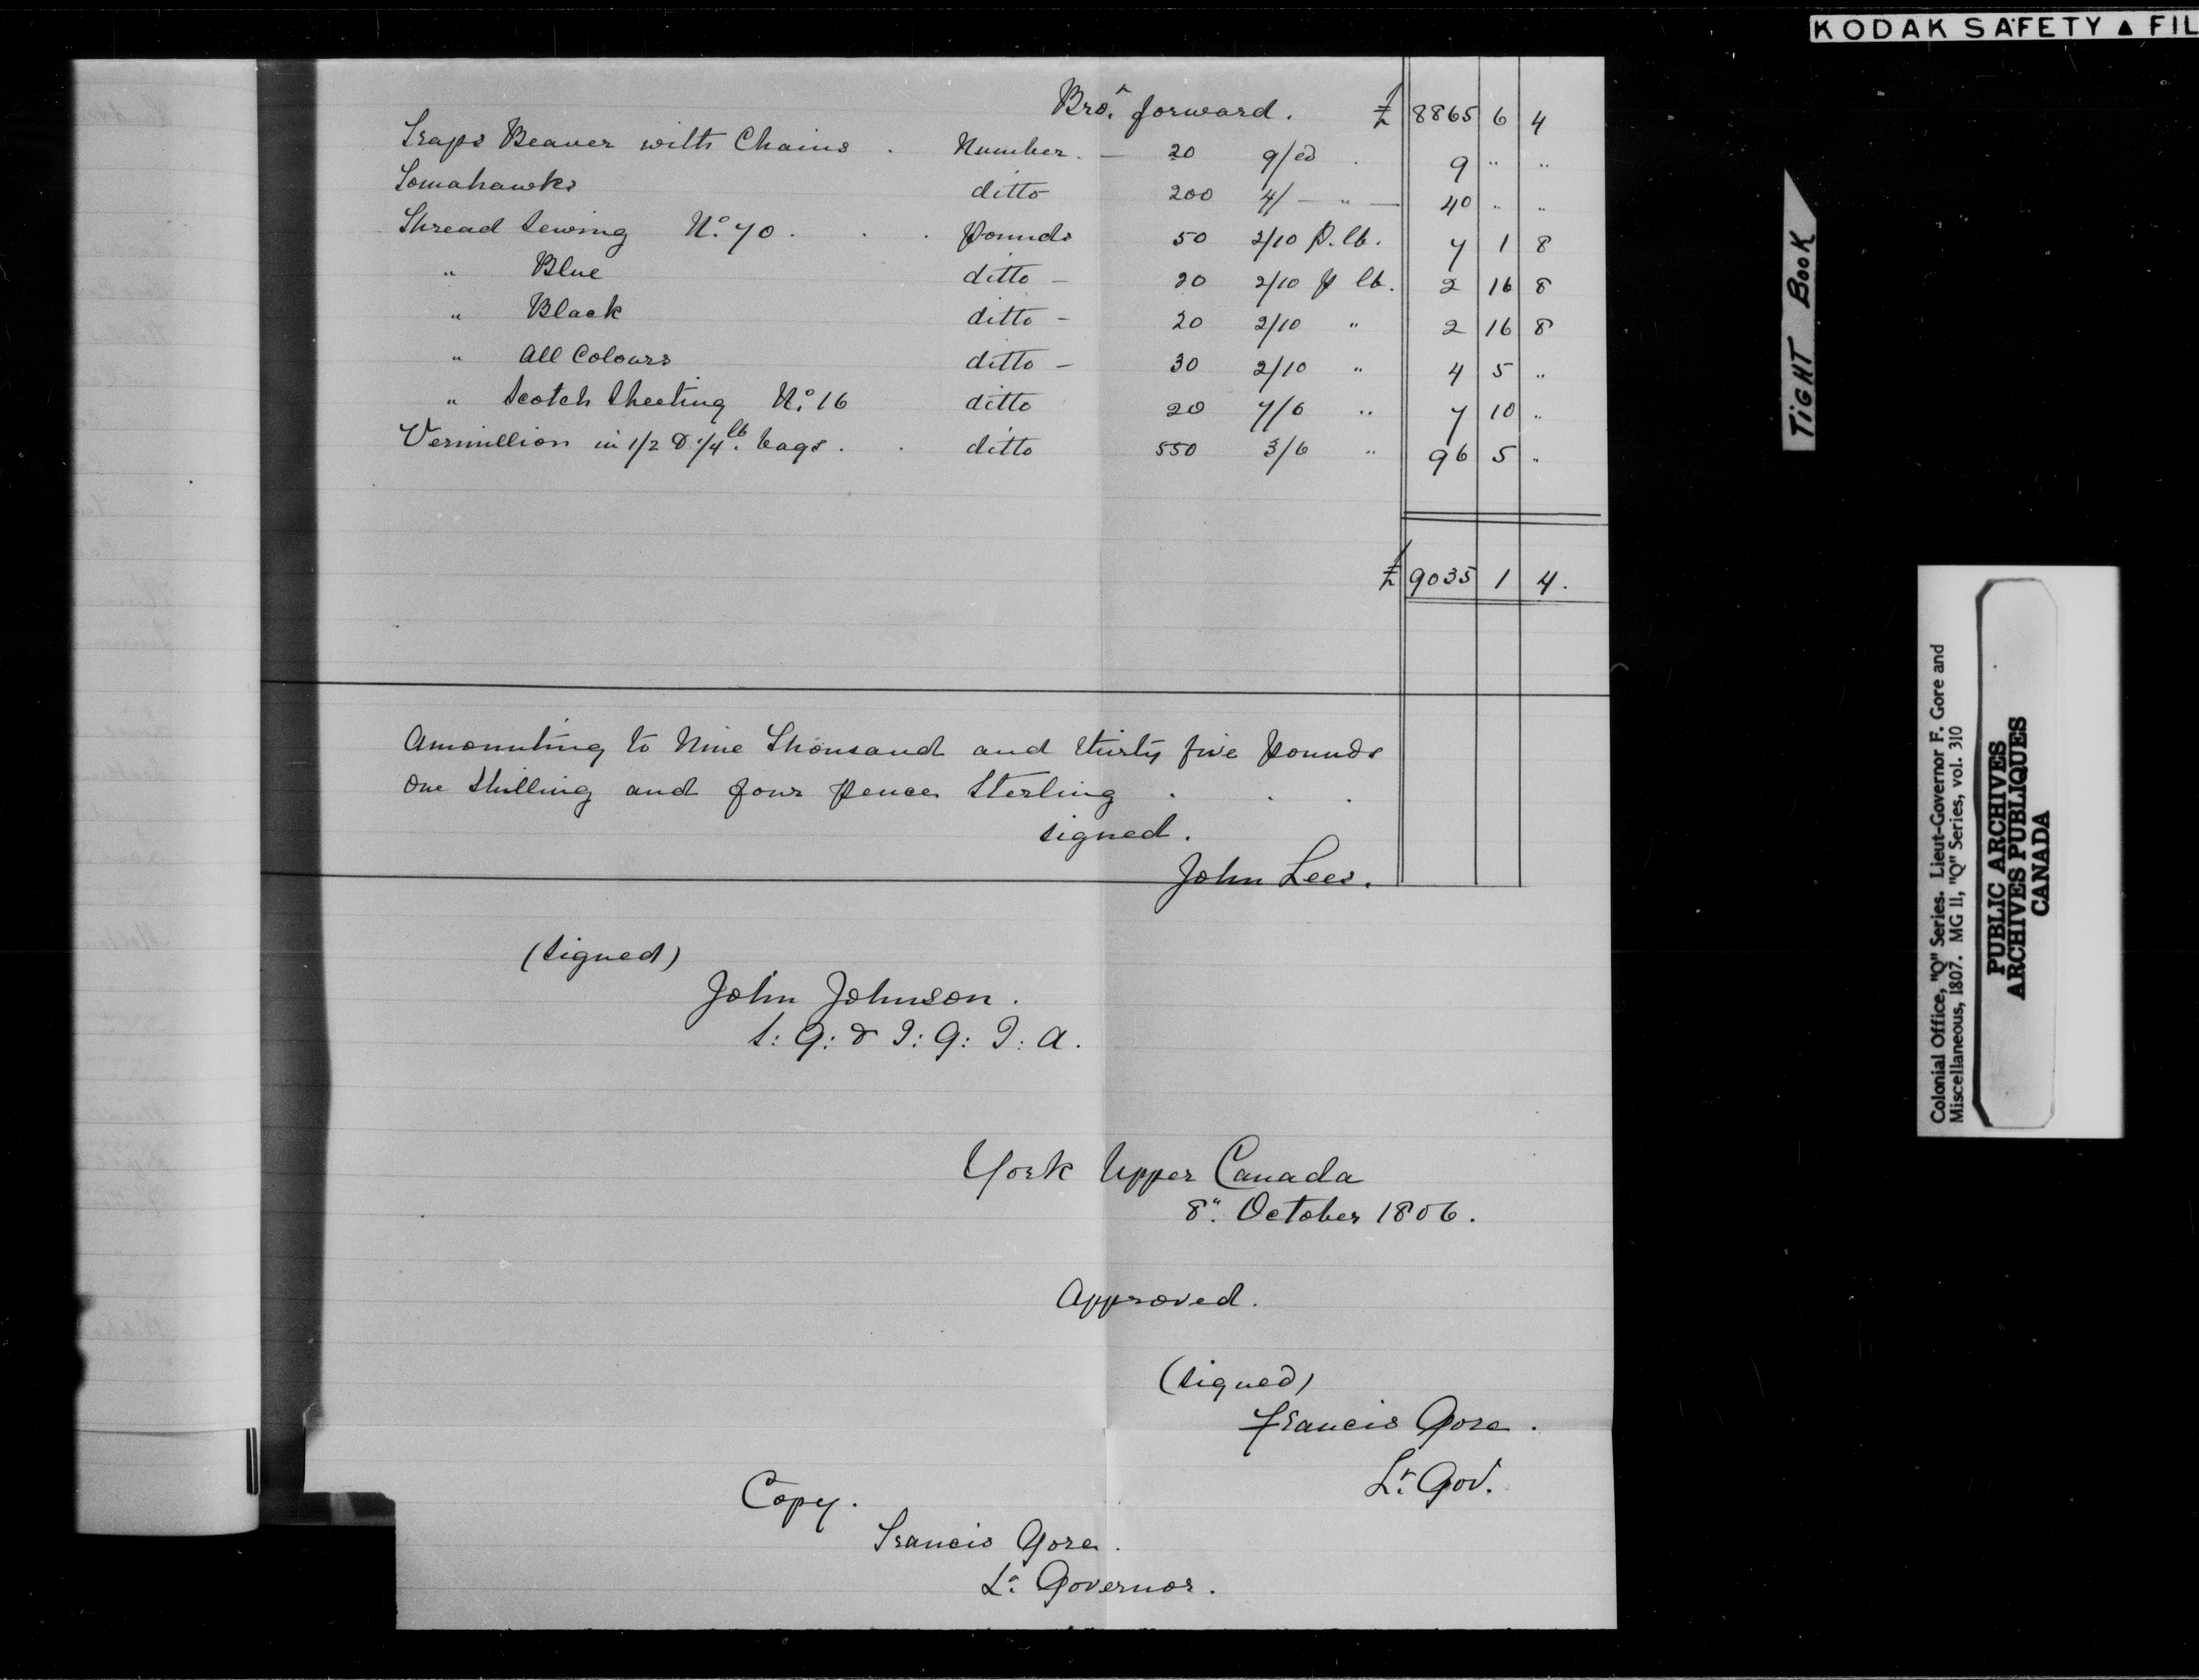 KODAK SAFETY ▲ FIL
Bro.^t forward. £ 8865 6 4
Traps Beaver with Chains . Number. — 20 9/ea . 9 " "
Tomahawks ditto 200 4/ — " — 40 " "
Thread Sewing N.° 70 . . . Pounds 50 2/10 p. lb. 7 1 8
" Blue ditto — 20 2/10 p lb. 2 16 8
" Black ditto — 20 2/10 " 2 16 8
" All Colours ditto — 30 2/10 " 4 5 "
" Scotch Sheeting N.° 16 ditto 20 7/6 " 7 10 "
Vermillion in 1/2 & 1/4 lb. bags . . ditto 550 3/6 " 96 5 "
£ 9035 1 4.
Amounting to Nine Thousand and thirty five Pounds
One Shilling and four Pence Sterling . . .
Signed.
John Lees.
(Signed)
John Johnson.
S: G: & I: G: I: A.
York Upper Canada
8". October 1806.
Approved.
(Signed)
Francis Gore.
Lt. Gov.
Copy.
Francis Gore.
Lt. Governor.
TIGHT BOOK
Colonial Office, "Q" Series. Lieut-Governor F. Gore and
Miscellaneous, 1807. MG 11, "Q" Series, vol. 310
PUBLIC ARCHIVES
ARCHIVES PUBLIQUES
CANADA